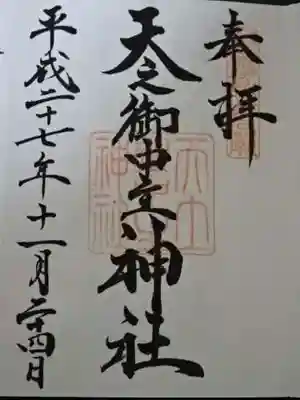 奉拝
天之御中主神社
平成二十七年十一月二十四日